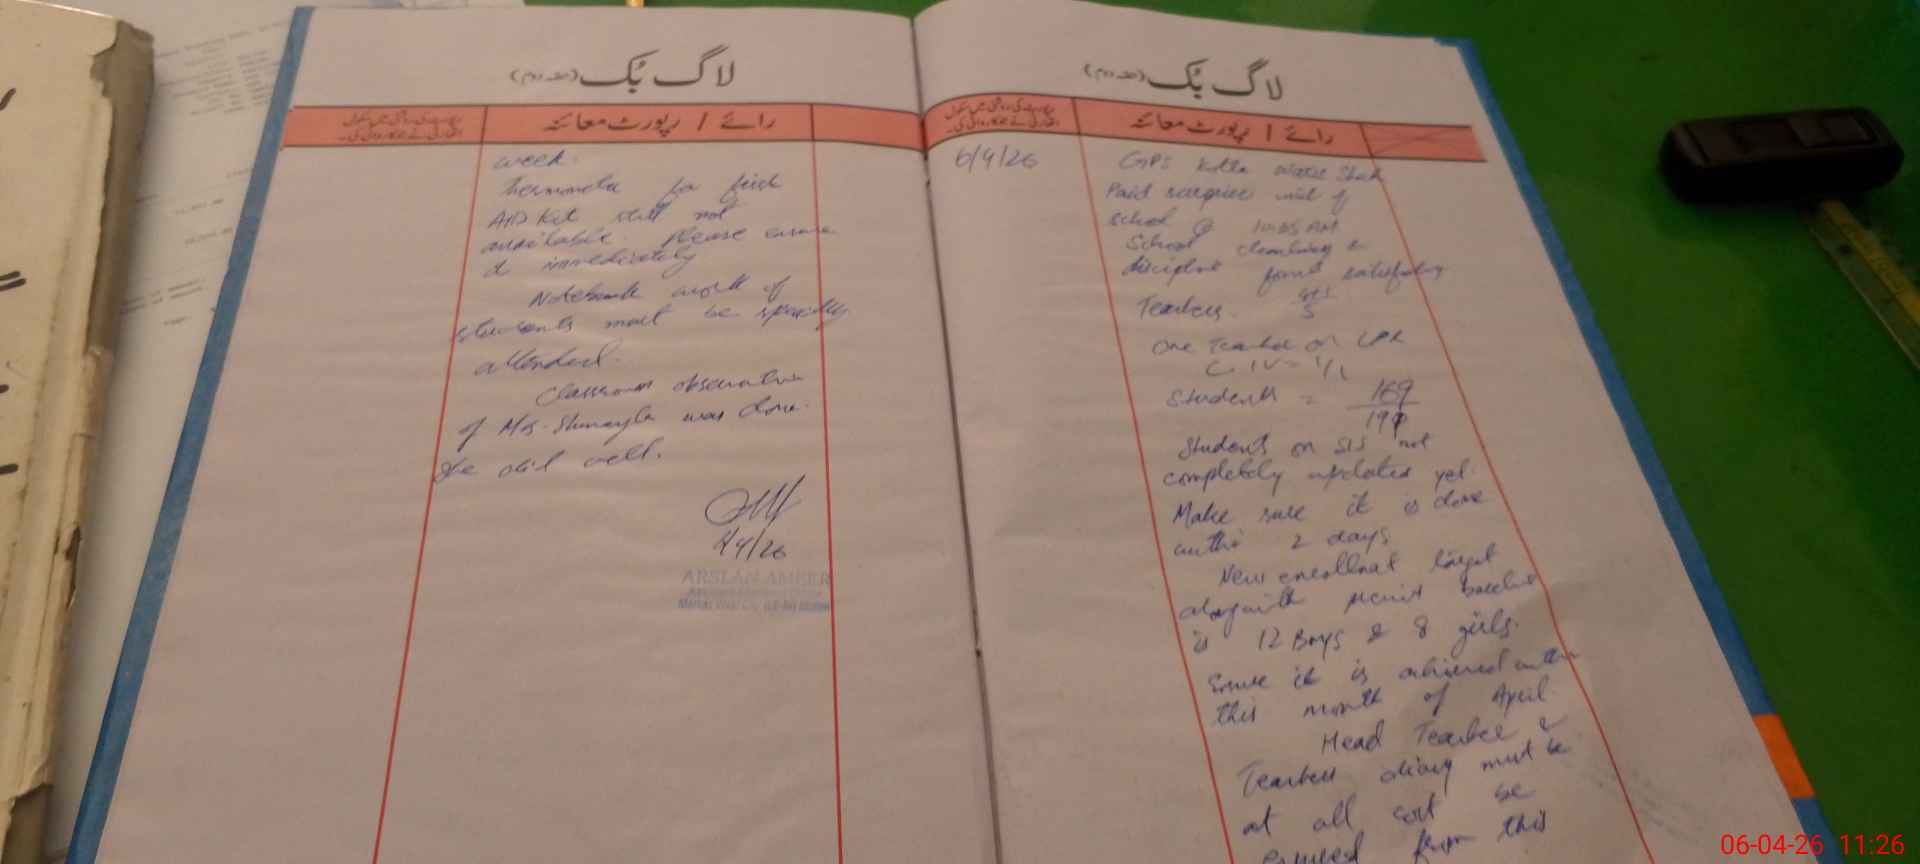 لاگ بک (حصہ دوم)
رائے / رپورٹ معائنہ
week.
Thermometer for first
AID Kit still not
available. Please ensure
it immediately
Notebook work of
students must be specially
attended.
Classroom observation
of Mrs. Shumayla was done.
She did well.
4/4/26
ARSLAN AMEER
لاگ بک (حصہ دوم)
رائے / رپورٹ معائنہ
6/4/26
GPS Kotla Shah
Paid surprise visit of
school @ 10:55 AM
School cleanliness &
discipline found satisfactory
Teachers
5
One Teacher on LPR
C-IV = 1/1
Students = 169
Students on SIS not
completely updated yet.
Make sure it is done
within 2 days
New enrollment target
alongwith baseline
is 12 Boys & 8 girls.
Ensure it is achieved within
this month of April.
Head Teacher &
Teachers diary must be
at all cost be
ensured from this
06-04-26 11:26